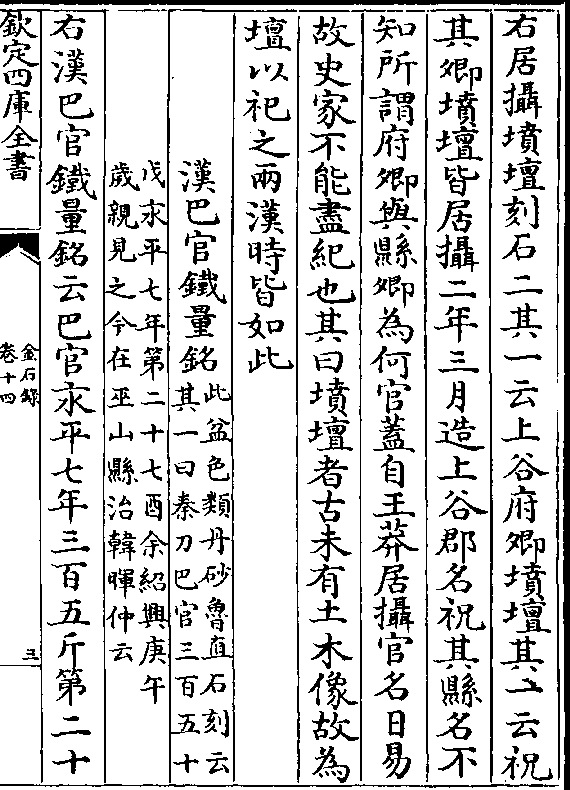 右居攝墳壇刻石二其一云上谷府卿墳壇其一云祝
其卿墳壇皆居攝二年三月造上谷郡名祝其縣名不
知所謂府卿與縣卿為何官蓋自王莽居攝官名日易
故史家不能盡紀也其曰墳壇者古未有土木像故為
壇以祀之兩漢時皆如此
漢巴官鐵量銘此盆色類丹砂魯直石刻云
其一曰秦刀巴官三百五十
戊永平七年第二十七酉余紹興庚午
歲親見之今在巫山縣治韓暉仲云
右漢巴官鐵量銘云巴官永平七年三百五斤第二十
欽定四庫全書
金石錄
卷十四
三